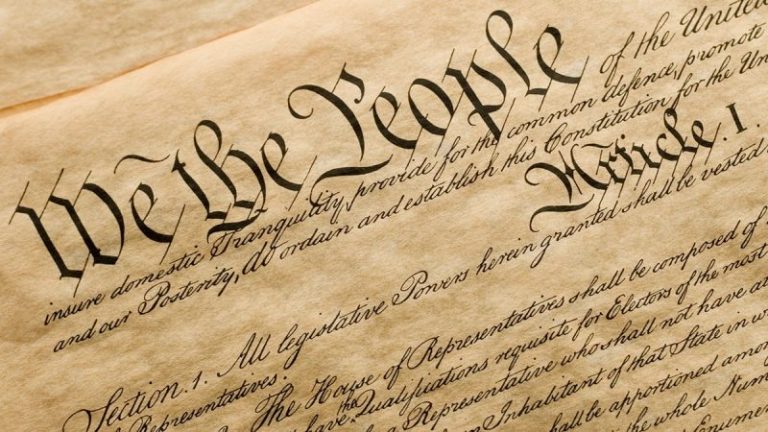 We the People of the United
insure domestic Tranquility, provide for the common defence, promote
and our Posterity, do ordain and establish this Constitution for the Un
Article. I.
Section. 1. All legislative Powers herein granted shall be vested
Representatives.
The House of Representatives shall be composed of
have the Qualifications requisite for Electors of the most
a Representative who shall not have at
Inhabitant of that State in w
shall be apportioned amon
the whole Num
Enumer